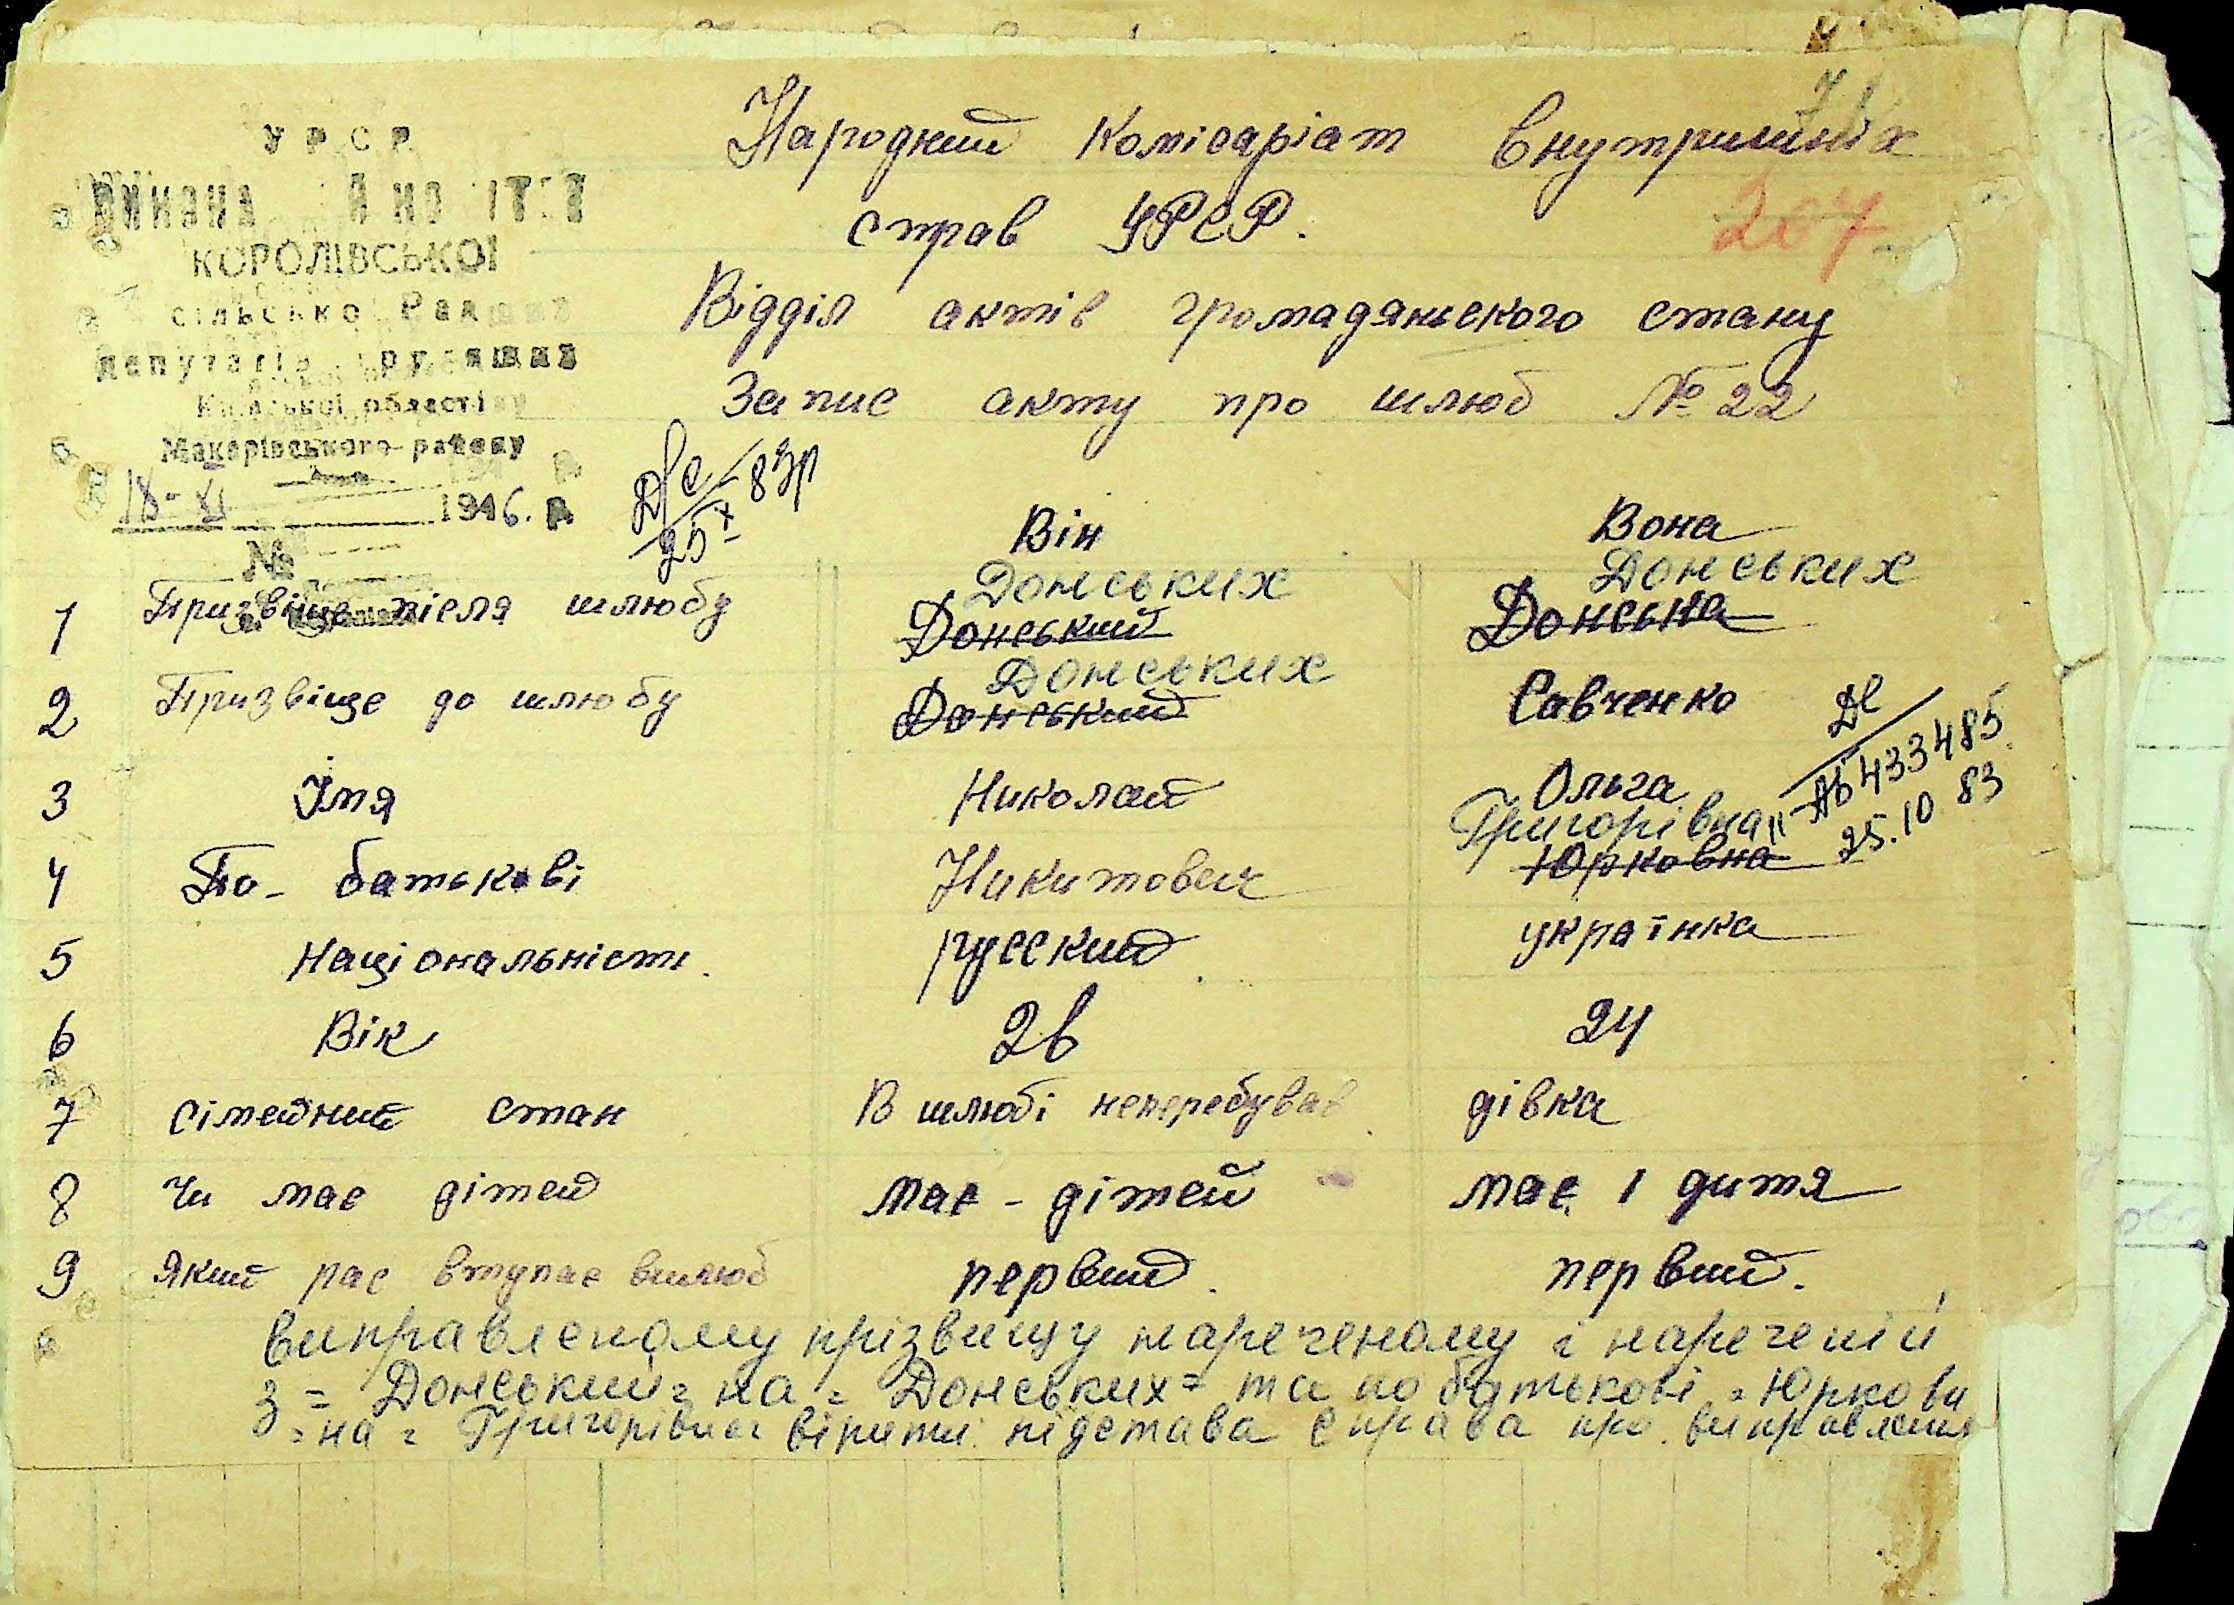 УРСР
КОРОЛІВСЬКОЇ
Київської області
Макарівського району
18-XI 1946. р.
№
Народний Комісаріат Внутришніх
справ УРСР.
207
Відділ актів громадянського стану
Запис акту про шлюб № 22
25 X 83р
Він Вона
Донських Донських
1 Призвіще після шлюбу Донський Донська
Донських
2 Призвіще до шлюбу Донський Савченко
АБ 433485
25.10 83
3 Імя Николай Ольга
Григорівна
4 По-батькові Никитович Юрковна
5 Національність. русский. українка
6 Вік 26 24
7 Сімейний стан В шлюбі неперебував дівка
8 Чи має дітей має - дітей має 1 дитя
9 Який рас вступає вшлюб первий. первий.
Виправленому прізвищу нареченому і нареченій
з = Донський = на = Донських = та по батькові = Юркови
= на = Григорівна вірити. підстава справа про виправлення